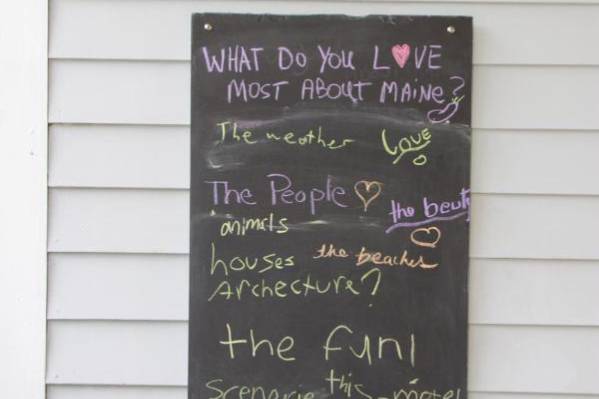 WHAT DO YOU LOVE
MOST ABOUT MAINE?
The weather Love
The People
the beuty
animals
houses the beaches
Archecture?
the fun!
this motel